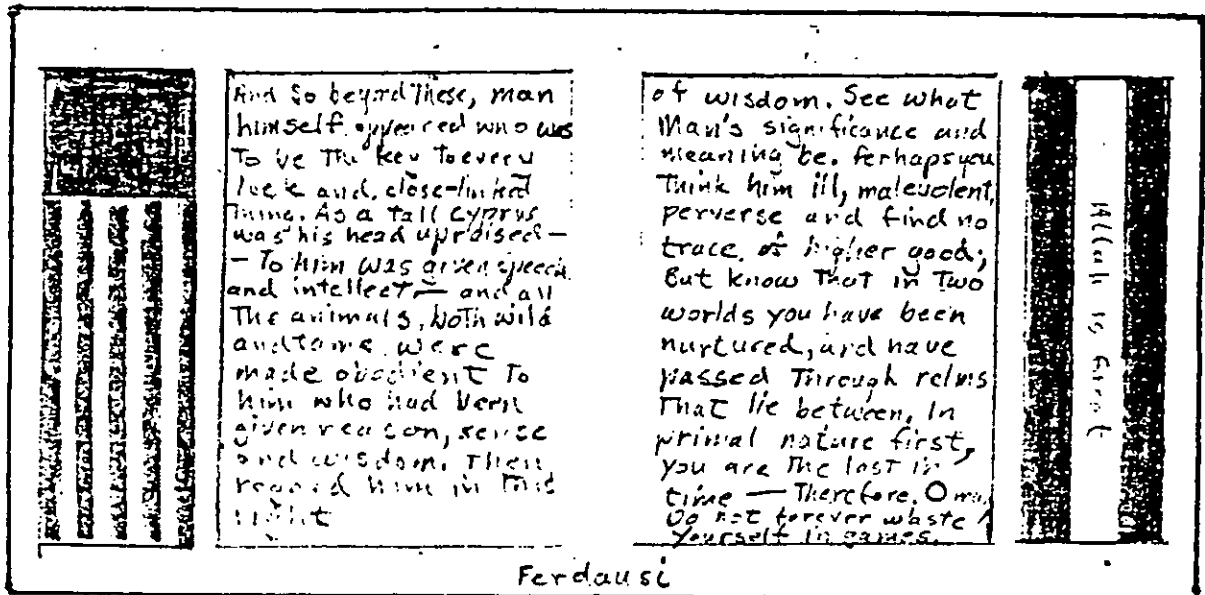 And So beyond These, man
himself appeared who was
To be The key To every
lock and close-linked
Thing. As a Tall Cyprus
was his head upraised —
— To him was given speech
and intellect — and all
The animals, both wild
and tame were
made obedient To
him who had been
given reason, sense
and wisdom. Then
regard him in This
Light
of wisdom. See what
Man's significance and
meaning be. Perhaps you
Think him ill, malevolent,
perverse and find no
trace of higher good;
But know That in Two
worlds you have been
nurtured, and have
passed Through relms
That lie between, In
primal nature first,
you are The last in
time — Therefore, O man
Do not forever waste
Yourself in games.
Allah is Great
Ferdausi